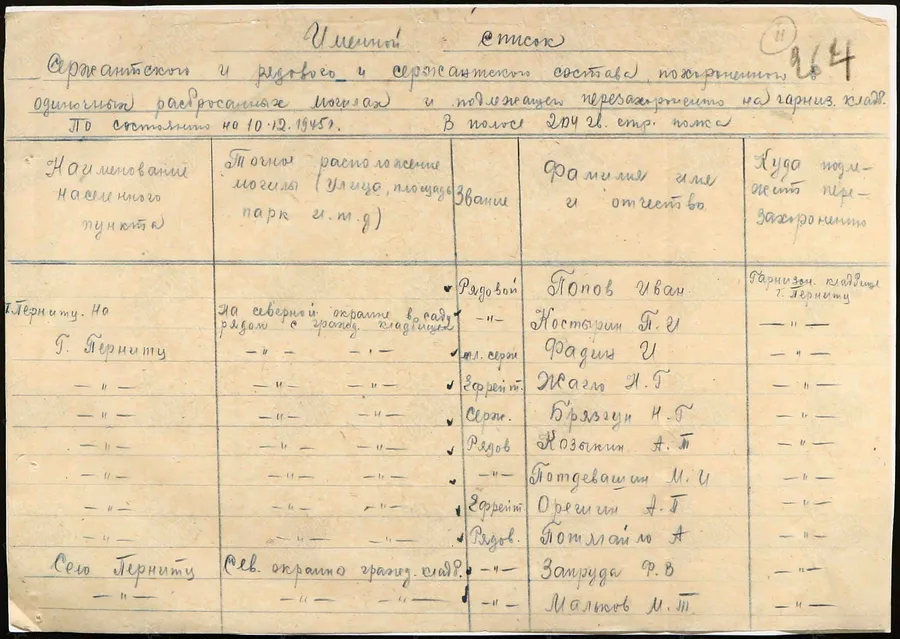 Именной список
11
264
Сержантского и рядового и сержантского состава, похороненного в
одиночных разбросанных могилах и подлежащего перезахоронению на гарниз. кладб.
По состоянию на 10.12.1945г. В полосе 204 гв. стр. полка
Наименование населенного пункта
Точное расположение могилы (улица, площадь парк и.т.д)
Звание
Фамилия имя и отчество
Куда подле-жит пере-захоронению
Рядовой Попов Иван Гарнизон. кладбище г. Перниту
г. Перниту. На На северной окраине в саду рядом с гражд. кладбищем -"- Костырин П.И -"-
Г. Перниту -"- -"- мл. серж Фадин И -"-
-"- -"- -"- Ефрейт. Жагло Н.Г -"-
-"- -"- -"- Серж. Брязгун Н.Г -"-
-"- -"- -"- Рядов Козыкин А.Т -"-
-"- -"- -"- -"- Потдевашин М.И -"-
-"- -"- -"- Ефрейт Орешин А.П -"-
-"- -"- -"- Рядов. Потягайло А -"-
Село Перниту Сев. окраина гражд. кладб. -"- Запруда Ф.В -"-
-"- -"- -"- -"- Мальков М.Т. -"-